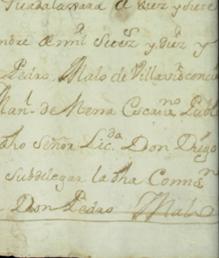 Guadalaxara a diez y siete
mbre de mil Setes y diez y
Pedro Malo de Villavicencio
Man.l de Mena Escriu.no Publ
dho Señor Lic.do Don Diego
Subdelegar la dha Comm.n
Don Pedro Malo